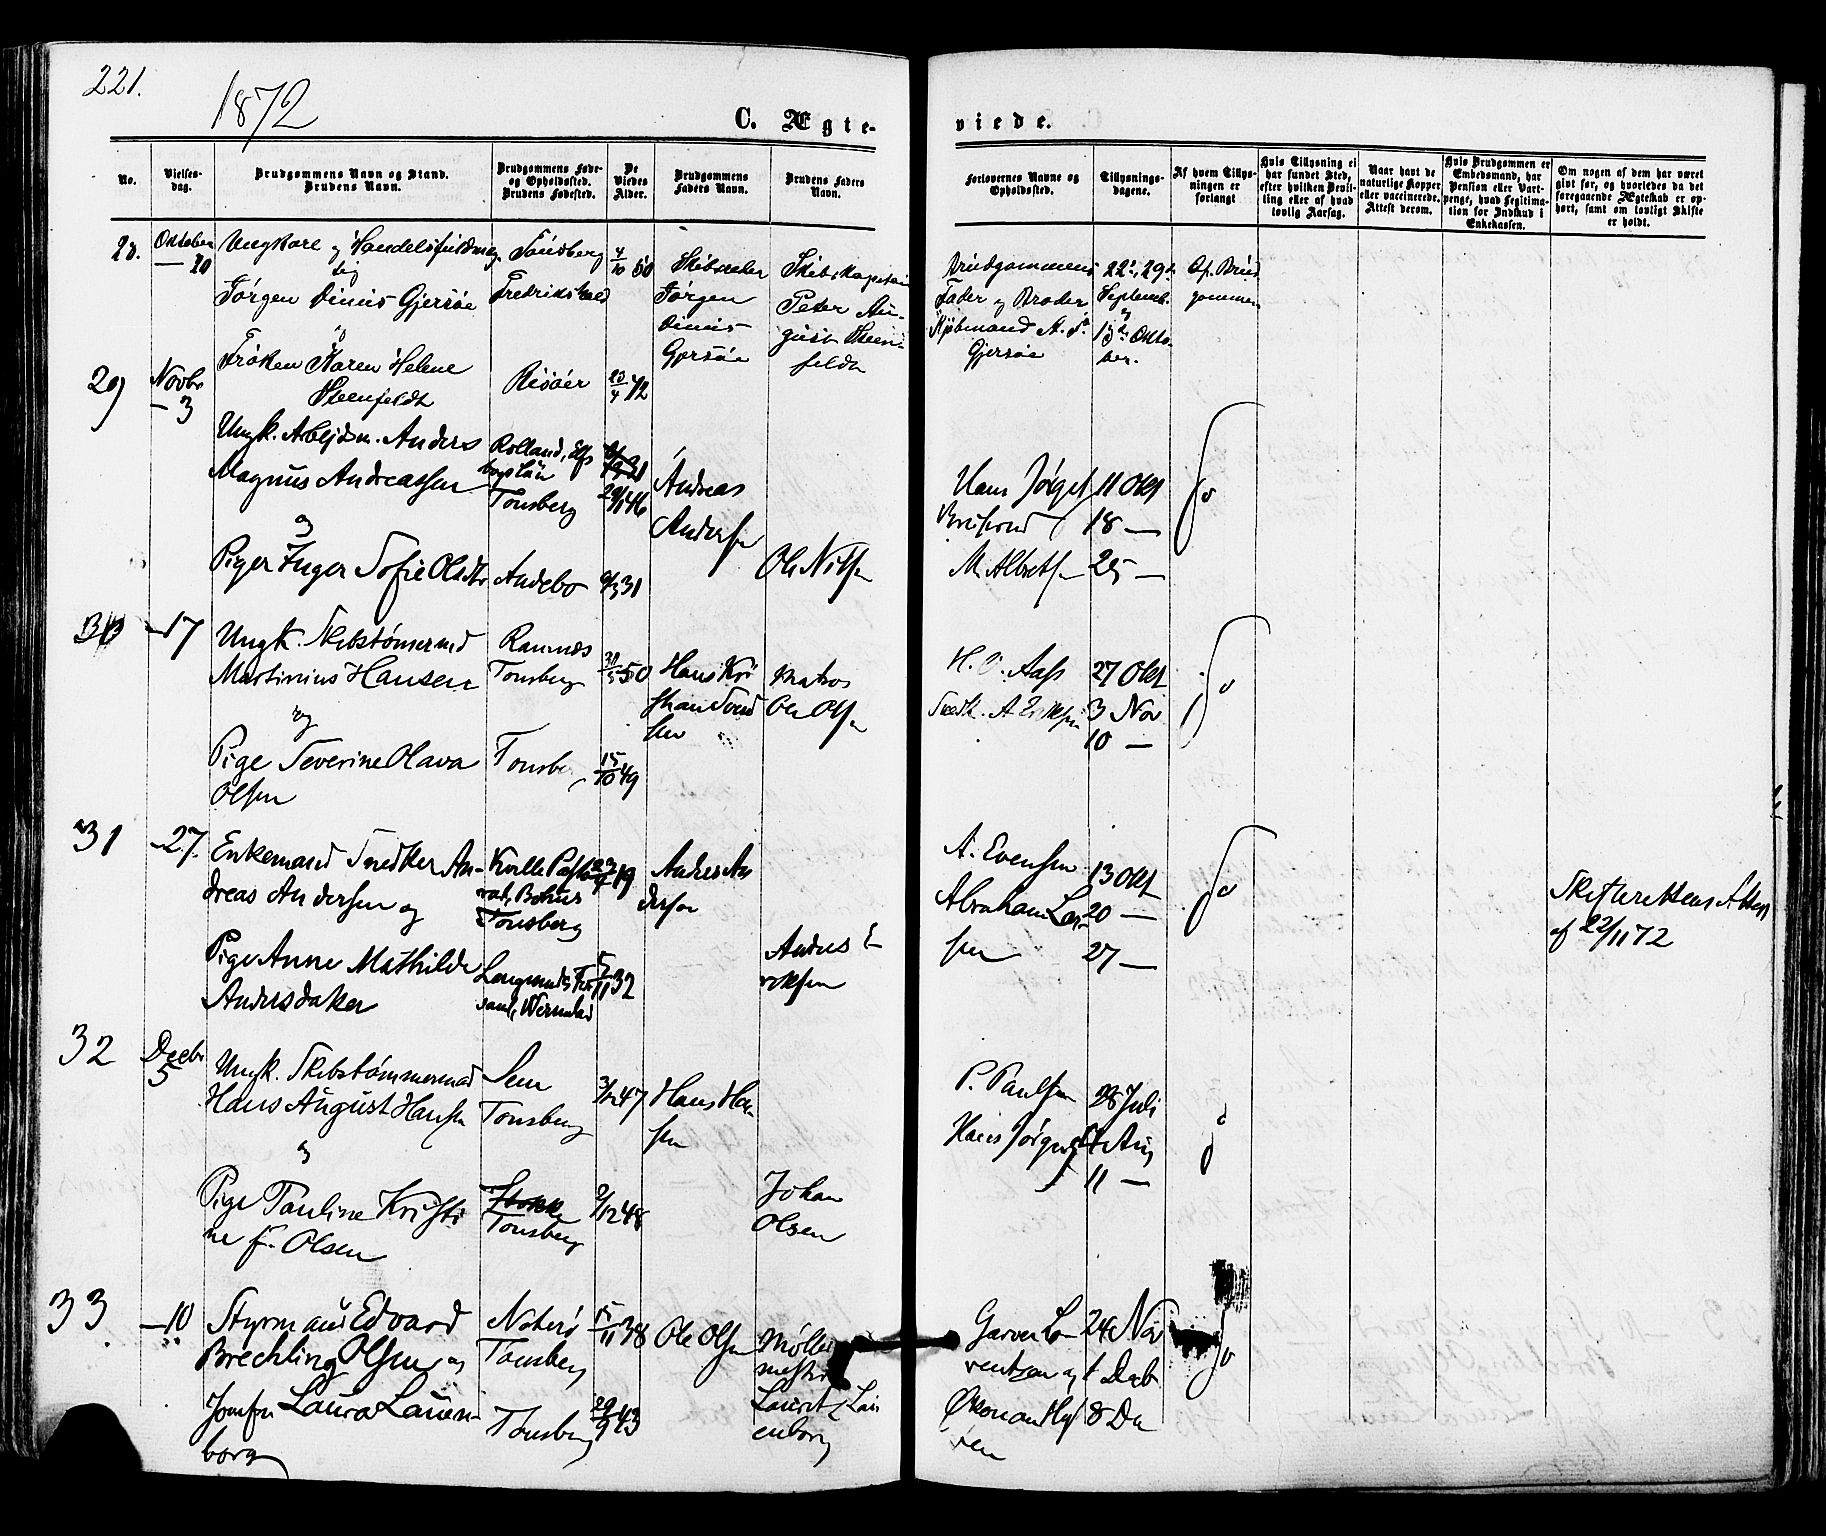 221.
1872
C. Ægte-
viede.
No.
Vielses-
dag.
Brudgommens Navn og Stand.
Brudens Navn.
Brudgommens Føde-
og Opholdssted.
Brudens Fødested.
De
Viedes
Alder.
Brudgommens
Faders Navn.
Brudens Faders
Navn.
Forlovernes Navne og
Opholdssted.
Tillysnings-
dagene.
Af hvem Tillys-
ningen er
forlangt
Hvis Tillysning ei
har fundet Sted,
efter hvilken Bevil-
ling eller af hvad
lovlig Aarsag.
Naar havt de
naturlige Kopper
eller vaccinerede.
Attest derom.
Hvis Brudgommen er
Embedsmand, har
Pension eller Vart-
penge, hvad Legitima-
tion for Indskud i
Enkekassen.
Om nogen af dem har været
gift før, og hvorledes da det
foregaaende Ægteskab er op-
hørt, samt om lovligt Skifte
er holdt.
28.
Oktober
— 20
Ungkarl og Handelsfuldmæg
tig
Jørgen Dinus Gjersøe
og
Frøken Karen Helene
Steenfeldt
Tønsberg
Fredrikshald
Risøer
4/10 50
23/4 42
Skibsreder
Jørgen
Dinus
Gjersøe
Skibskaptain
Peter Au-
gust Steen-
feldt
Brudgommens
Fader og Broder
Kjøbmand A. F.
Gjersøe
22de, 29de
Septemb.
og
13de Okto-
ber.
Af Brud
gommen
29
Novbr
- 3
Ungk. Arbejdsm. Anders
Magnus Andreassen
og
Pigen Inger Sofie Olsdtr
Rolland, Elfs
borgs Län
Tønsberg
Andebo
29/1 46
9/3 31
Andreas
Andersen
Ole Nilsen
Hans Jørget
M. Albretsen
11 Okt
18 —
25 —
30
- 17
Ungk. Skibstømermd
Martinius Hansen
og
Pige Severine Olava
Olsen
Ramnes
Tønsberg
Tønsbe
50
15/10 49
Hans Kri
stian Svend
sen
Matros
Ole Olsen
H. O. Aass
27 Okt
3 Nov
10 —
31
- 27.
Enkemand Snedker An-
dreas Andersen og
Pige Anne Mathilde
Andersdatter
Tønsberg
23/4 19
5/11 32
Anders An
dersen
Anders E
riksen
A. Evensen
Abraham Lar
sen
13 Okt
20 —
27 —
Skifterettens Attest
af 22/11 72
32
Decbr
5
Ungk. Skibstømmermand
Hans August Hansen
og
Pige Pauline Kristi
ne f. Olsen
Sem
Tønsberg
Stokke
Tønsberg
3/12 47
2/12 48
Hans Han
sen
Johan
Olsen
P. Paulsen
Hans Jørgensen
28 Juli
4 Aug
11 —
33
— 10
Styrmand Edvard
Brechling Olsen og
Jomfru Laura Lauen-
borg
Nøterø
Tønsberg
Tønsberg
15/11 38
29/9 43
Ole Olsen
Møller
mester
Laurits Lau
enborg
Garver Lo-
rentzen og
Økonom Hy
24 Nov
1 Decb
8 De